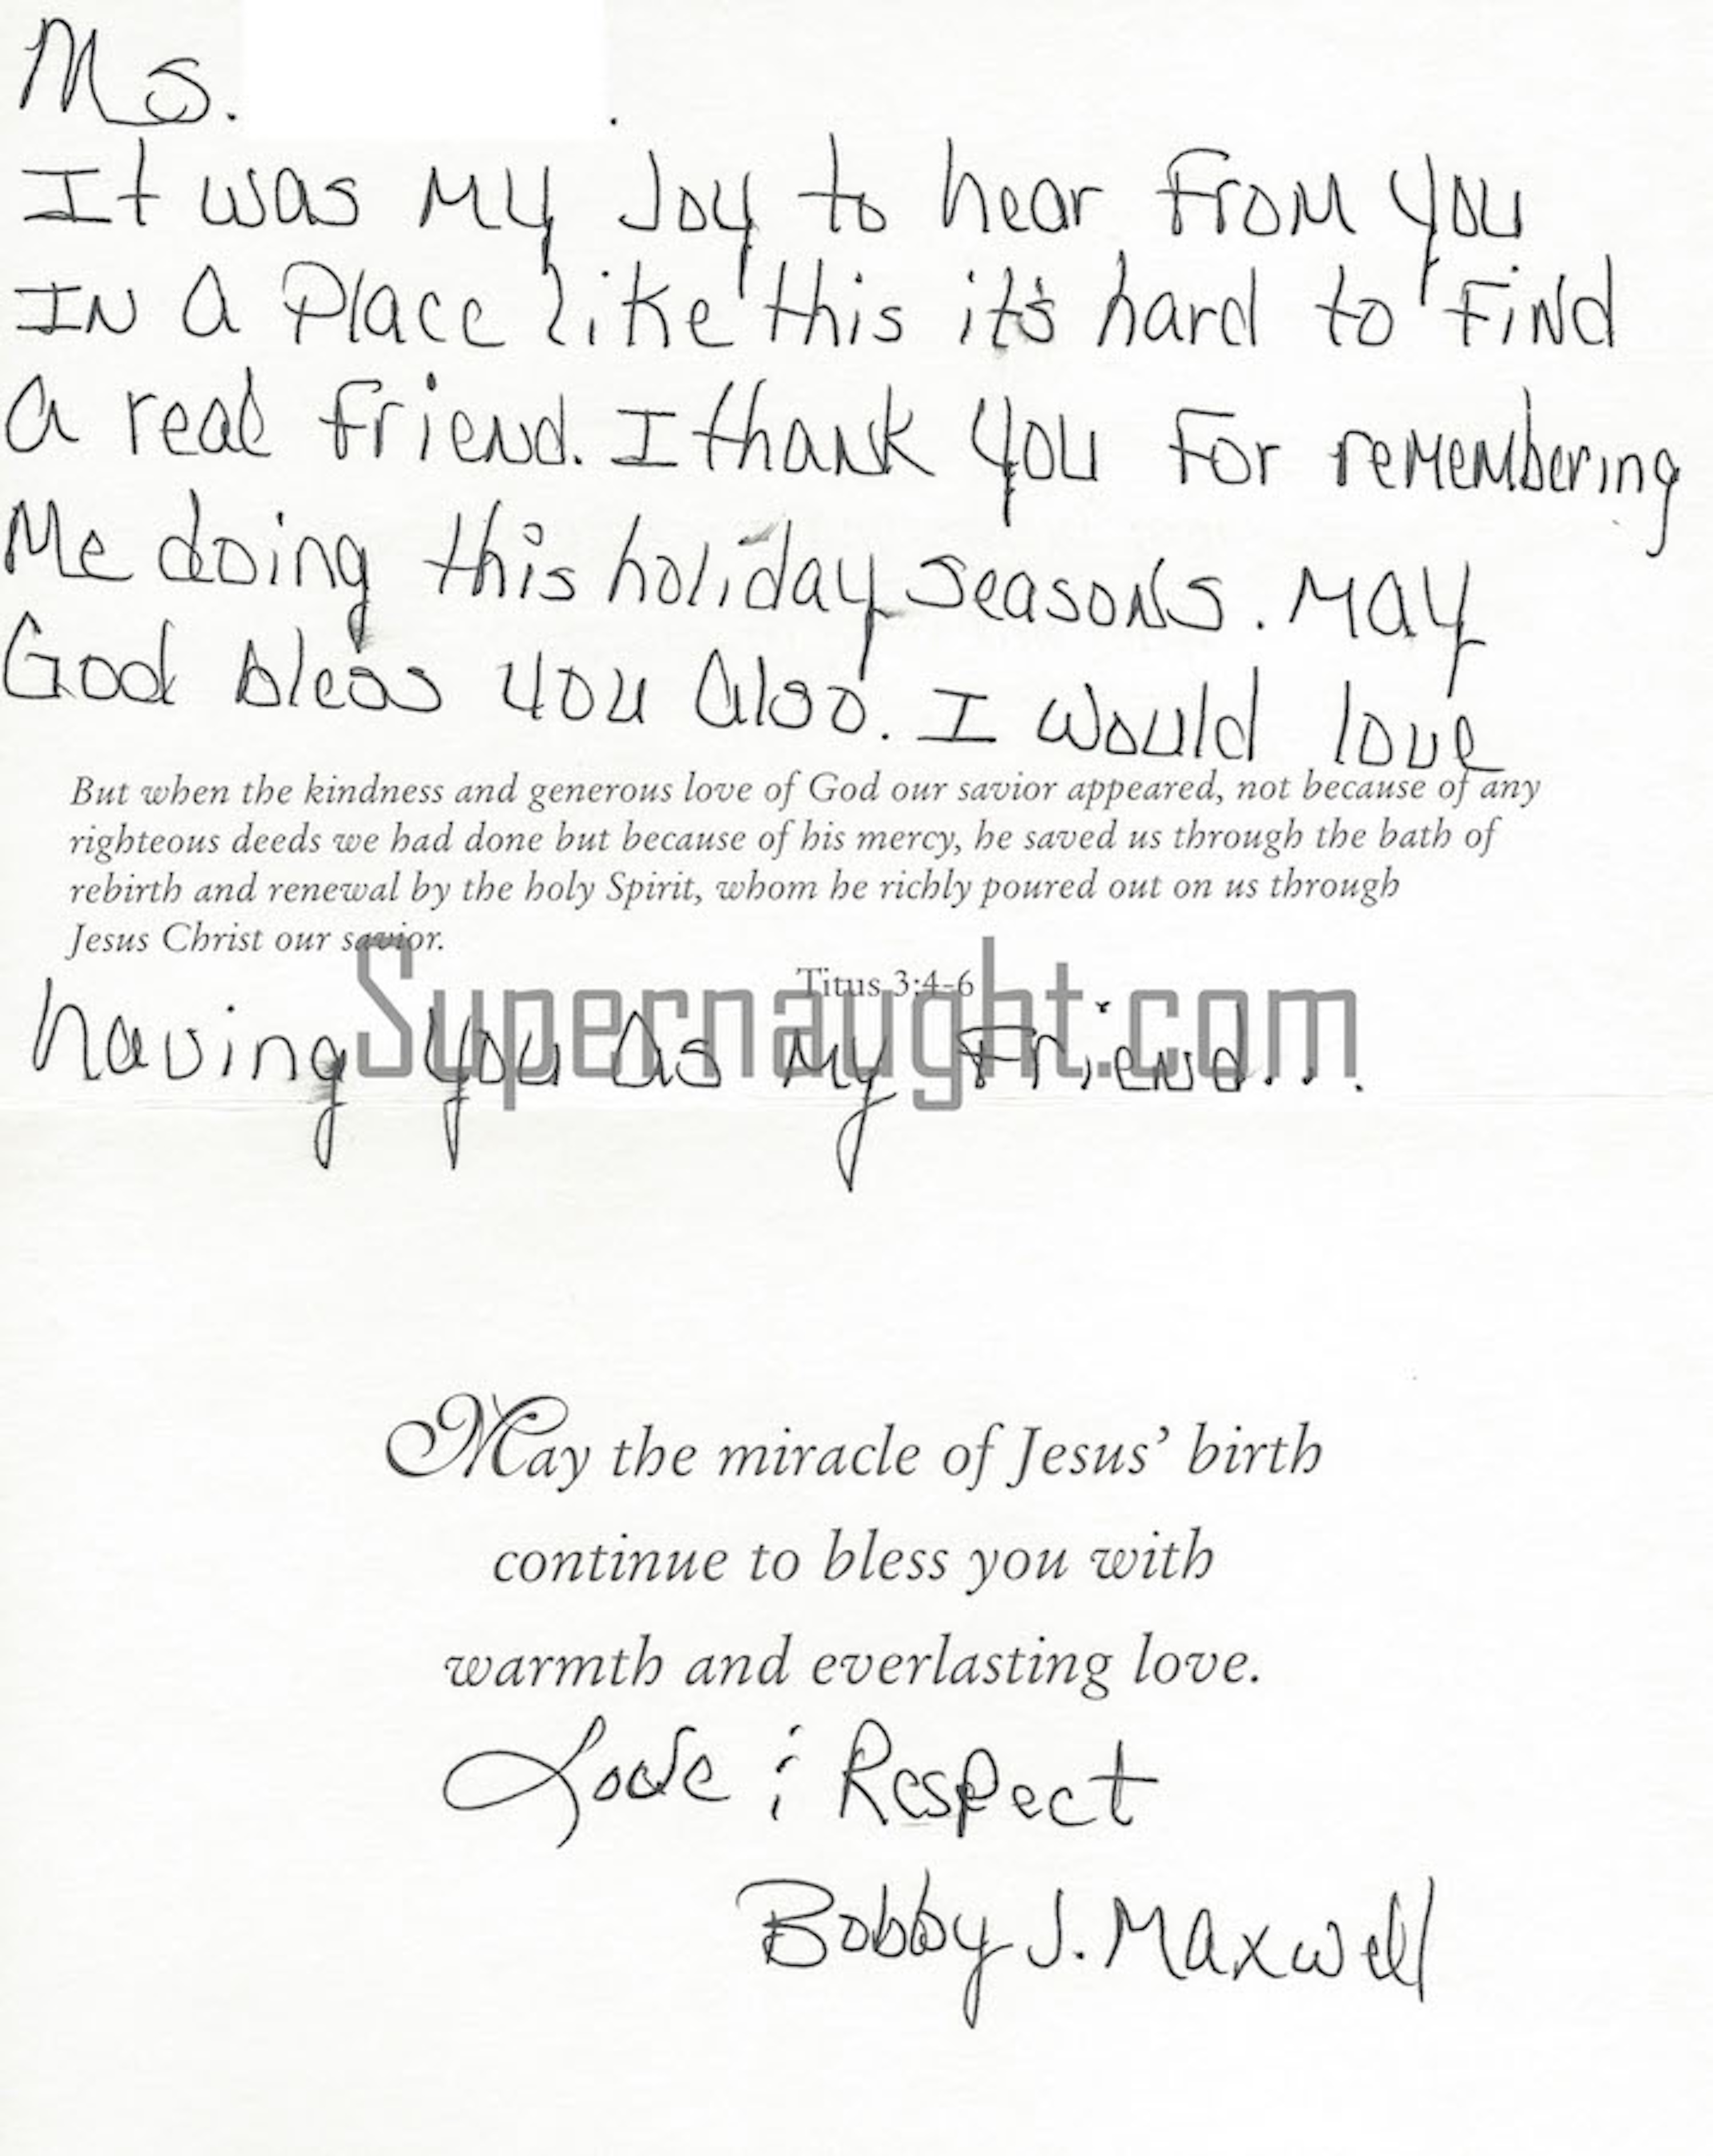 Ms. .
It was My Joy to hear From you
IN A Place like this it's hard to FiNd
A real Friend. I thank you For remembering
Me doing this holiday seasons. MAY
God bless you Also. I would love
But when the kindness and generous love of God our savior appeared, not because of any
righteous deeds we had done but because of his mercy, he saved us through the bath of
rebirth and renewal by the holy Spirit, whom he richly poured out on us through
Jesus Christ our savior.
Titus 3:4-6
Supernaught.com
having you As My Friend...
May the miracle of Jesus’ birth
continue to bless you with
warmth and everlasting love.
Love & Respect
Bobby J. Maxwell